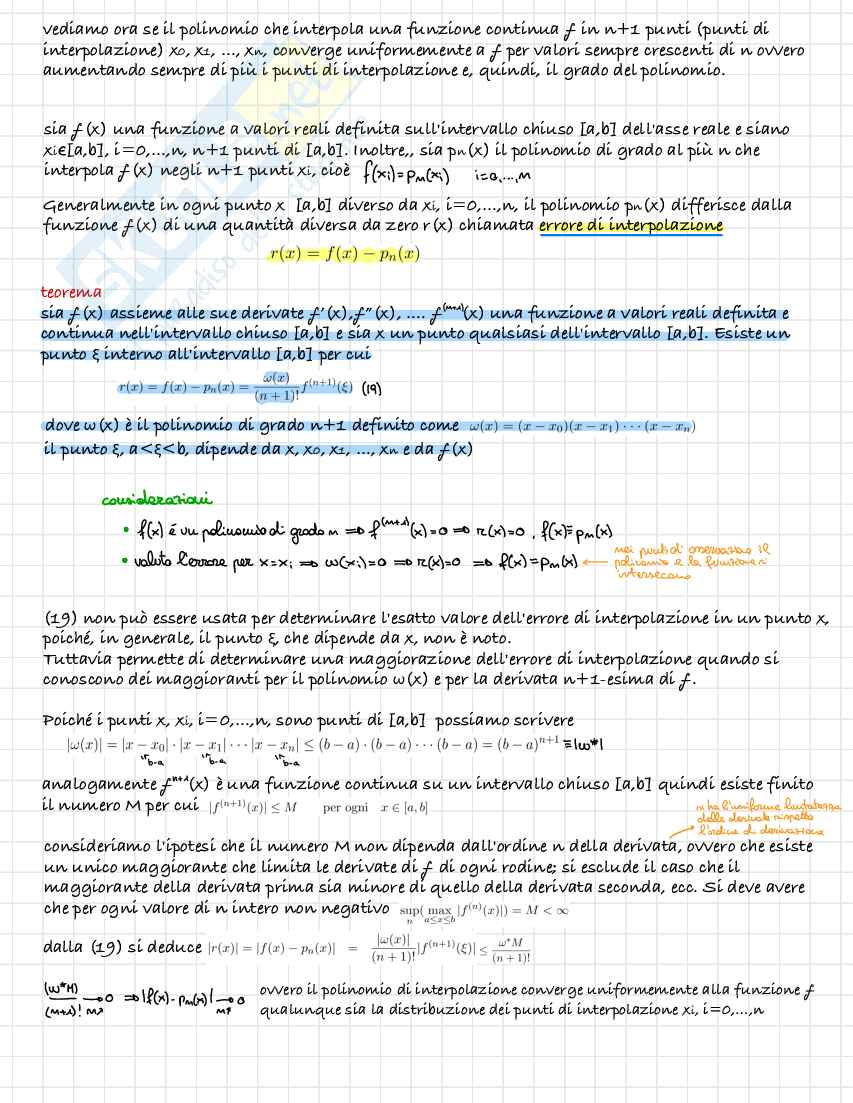 vediamo ora se il polinomio che interpola una funzione continua f in n+1 punti (punti di
interpolazione) x₀, x₁, ..., xₙ, converge uniformemente a f per valori sempre crescenti di n ovvero
aumentando sempre di più i punti di interpolazione e, quindi, il grado del polinomio.
sia f(x) una funzione a valori reali definita sull'intervallo chiuso [a,b] dell'asse reale e siano
xᵢ∈[a,b], i=0,...,n, n+1 punti di [a,b]. Inoltre,, sia pₙ(x) il polinomio di grado al più n che
interpola f(x) negli n+1 punti xᵢ, cioè f(xᵢ)=pₙ(xᵢ) i=0,...,n
Generalmente in ogni punto x [a,b] diverso da xᵢ, i=0,...,n, il polinomio pₙ(x) differisce dalla
funzione f(x) di una quantità diversa da zero r(x) chiamata errore di interpolazione
r(x) = f(x) − pₙ(x)
teorema
sia f(x) assieme alle sue derivate f'(x), f''(x), .... f⁽ⁿ⁺¹⁾(x) una funzione a valori reali definita e
continua nell'intervallo chiuso [a,b] e sia x un punto qualsiasi dell'intervallo [a,b]. Esiste un
punto ξ interno all'intervallo [a,b] per cui
r(x) = f(x) − pₙ(x) = ω(x)/(n+1)! f⁽ⁿ⁺¹⁾(ξ) (19)
dove ω(x) è il polinomio di grado n+1 definito come ω(x) = (x − x₀)(x − x₁) · · · (x − xₙ)
il punto ξ, a<ξ<b, dipende da x, x₀, x₁, ..., xₙ e da f(x)
considerazioni
• f(x) é un polinomio di grado n ⇒ f⁽ⁿ⁺¹⁾(x)=0 ⇒ r(x)=0, f(x)≡pₙ(x)
• valuto l'errore per x=xᵢ ⇒ ω(xᵢ)=0 ⇒ r(x)=0 ⇒ f(x)=pₙ(x) ←
nei punti di osservazione il
polinomio e la funzione si
intersecano
(19) non può essere usata per determinare l'esatto valore dell'errore di interpolazione in un punto x,
poiché, in generale, il punto ξ, che dipende da x, non è noto.
Tuttavia permette di determinare una maggiorazione dell'errore di interpolazione quando si
conoscono dei maggioranti per il polinomio ω(x) e per la derivata n+1-esima di f.
Poiché i punti x, xᵢ, i=0,...,n, sono punti di [a,b] possiamo scrivere
|ω(x)| = |x − x₀| · |x − x₁| · · · |x − xₙ| ≤ (b − a) · (b − a) · · · (b − a) = (b − a)ⁿ⁺¹ ≡|ω*|
b-a b-a b-a
analogamente fⁿ⁺¹(x) è una funzione continua su un intervallo chiuso [a,b] quindi esiste finito
il numero M per cui |f⁽ⁿ⁺¹⁾(x)| ≤ M per ogni x ∈ [a, b]
si ha l'uniforme limitatezza
delle derivate rispetto
l'ordine di derivazione
consideriamo l'ipotesi che il numero M non dipenda dall'ordine n della derivata, ovvero che esiste
un unico maggiorante che limita le derivate di f di ogni rodine; si esclude il caso che il
maggiorante della derivata prima sia minore di quello della derivata seconda, ecc. Si deve avere
che per ogni valore di n intero non negativo sup_n( max_{a≤x≤b} |f⁽ⁿ⁾(x)|) = M < ∞
dalla (19) si deduce |r(x)| = |f(x) − pₙ(x)| = |ω(x)|/(n+1)! |f⁽ⁿ⁺¹⁾(ξ)| ≤ ω*M/(n+1)!
(ω*M)/(n+1)! →0 ⇒ |f(x)-pₙ(x)| → 0 ovvero il polinomio di interpolazione converge uniformemente alla funzione f
qualunque sia la distribuzione dei punti di interpolazione xᵢ, i=0,...,n